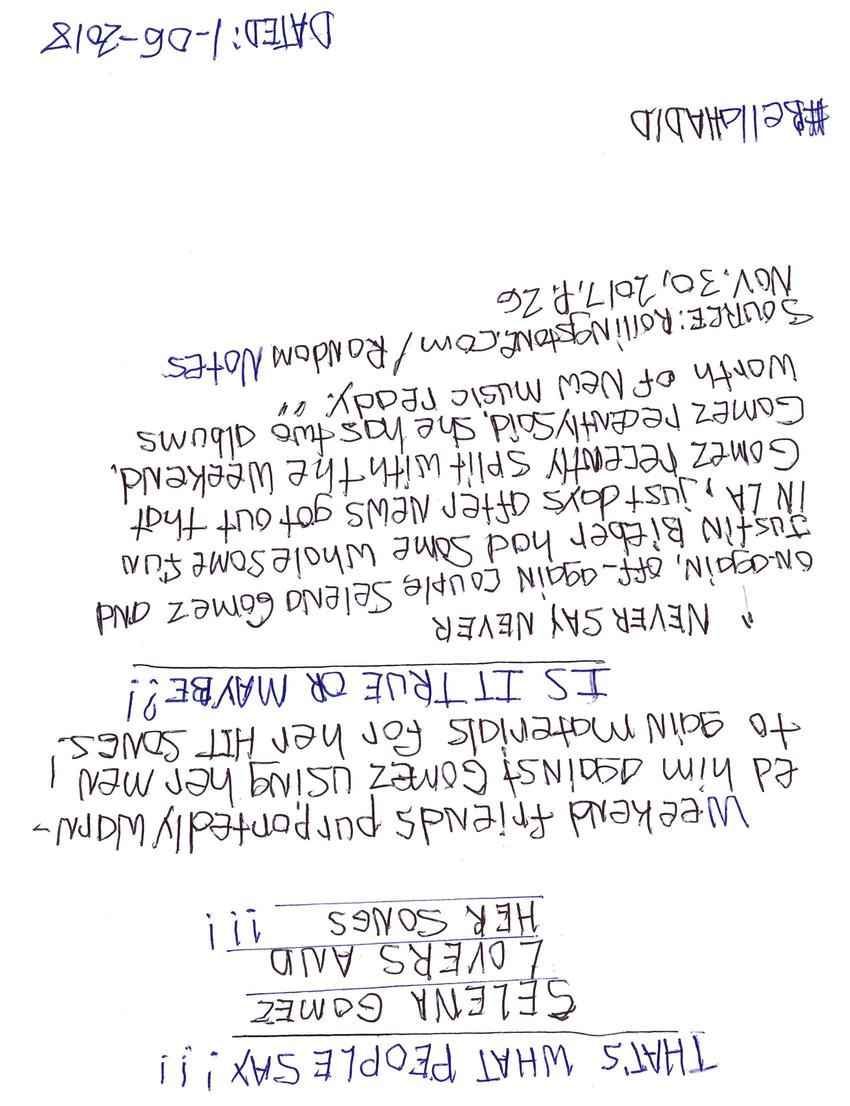 THAT'S WHAT PEOPLE SAY!!!
SELENA GOMEZ
LOVERS AND
HER SONGS !!!
Weekend friends purportedly warn-
ed him against Gomez using her men
to gain materials for her HIT SONGS!
IS IT TRUE OR MAYBE?!
" NEVER SAY NEVER
On-again, off-again couple Selena Gomez and
Justin Bieber had some wholesome fun
in LA, just days after news got out that
Gomez recently split with the Weekend.
Gomez recently said, she has two albums
worth of new music ready. "
Source: Rollingstone.com/Random Notes
Nov. 30, 2017, P. 26
#BellaHADID
DATED: 1-06-2018